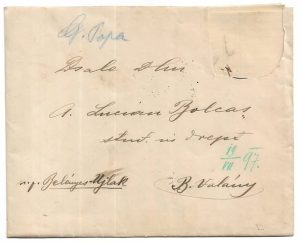 G. Popa
Dsale Dlui
A. Lucian Bolcaş
stud. in drept
19/VII 97.
u. p. Belényes-Ujlak
B. Valány